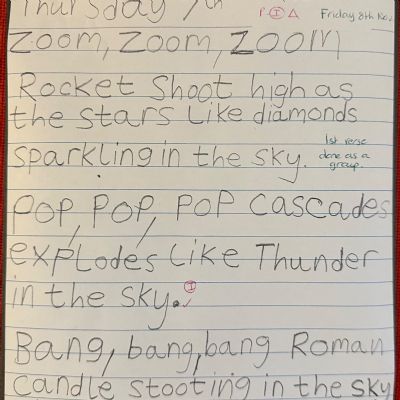 Thursday 7th
P I △ Friday 8th Nov
Zoom, Zoom, Zoom
Rocket Shoot high as
the stars Like diamonds
sparkling in the sky.
1st verse
done as a
group.
POP, POP, POP cascades
explodes Like Thunder
in the sky.
I
Bang, bang, bang Roman
candle stooting in the sky